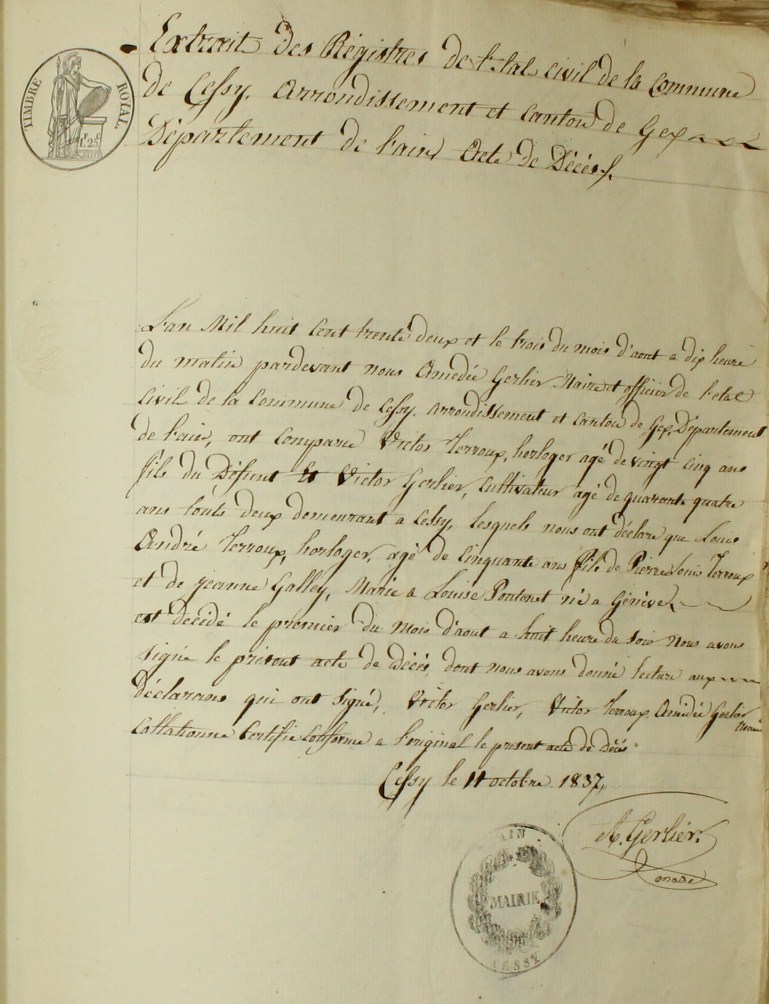 TIMBRE ROYAL.
1f 25c
Extrait Des Régistres De l'Etat Civil de la Commune
de Cessy, arrondissement et Canton de Gex
Département de l'ain, Acte de Décés.
L'an Mil huit Cent trente deux et le trois du mois d'aout a dix heure
du matin pardevant nous Amedée Gerlier Maire et officier de l'etat
Civil de la Commune de Cessy, arrondissement et Canton de Gex, Département
de l'ain, ont Comparu Victor Terroux, horloger agé de vingt Cinq ans
fils du Défunt Et Victor Gerlier, Cultivateur agé de quarante quatre
ans touts deux demeurant a Cessy, lesquels nous ont déclare que Louis
André Terroux, horloger, agé de Cinquante ans fils de Pierre Louis Terroux
et de jeanne Galley, Marié a Louise Pontonet né a Génève
est décédé le premier du mois d'aout a huit heure du soir Nous avons
signé le présent acte de Décés, dont nous avons donné lecture aux
Déclarans qui ont signé, Victor Gerlier, Victor Terroux, Amédée Gerlier
maire
Collationne Certifie Conforme a l'original le present acte de Décés
Cessy le 11 octobre 1837,
A. Gerlier.
maire
AIN
MAIRIE
CESSY